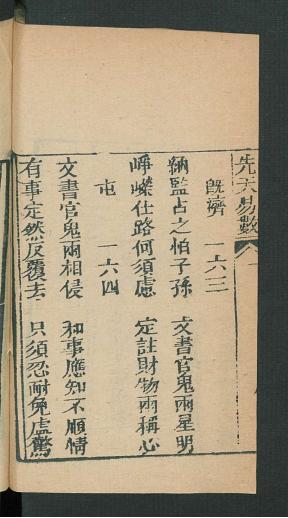 先天易數
旣濟　一六三
納監占之怕子孫　文書官鬼兩星明
崢嶸仕路何須慮　定註財物兩稱心
屯　一六四
文書官鬼兩相侵　知事應知不順情
有事定然反覆去　只須忍耐免虛驚